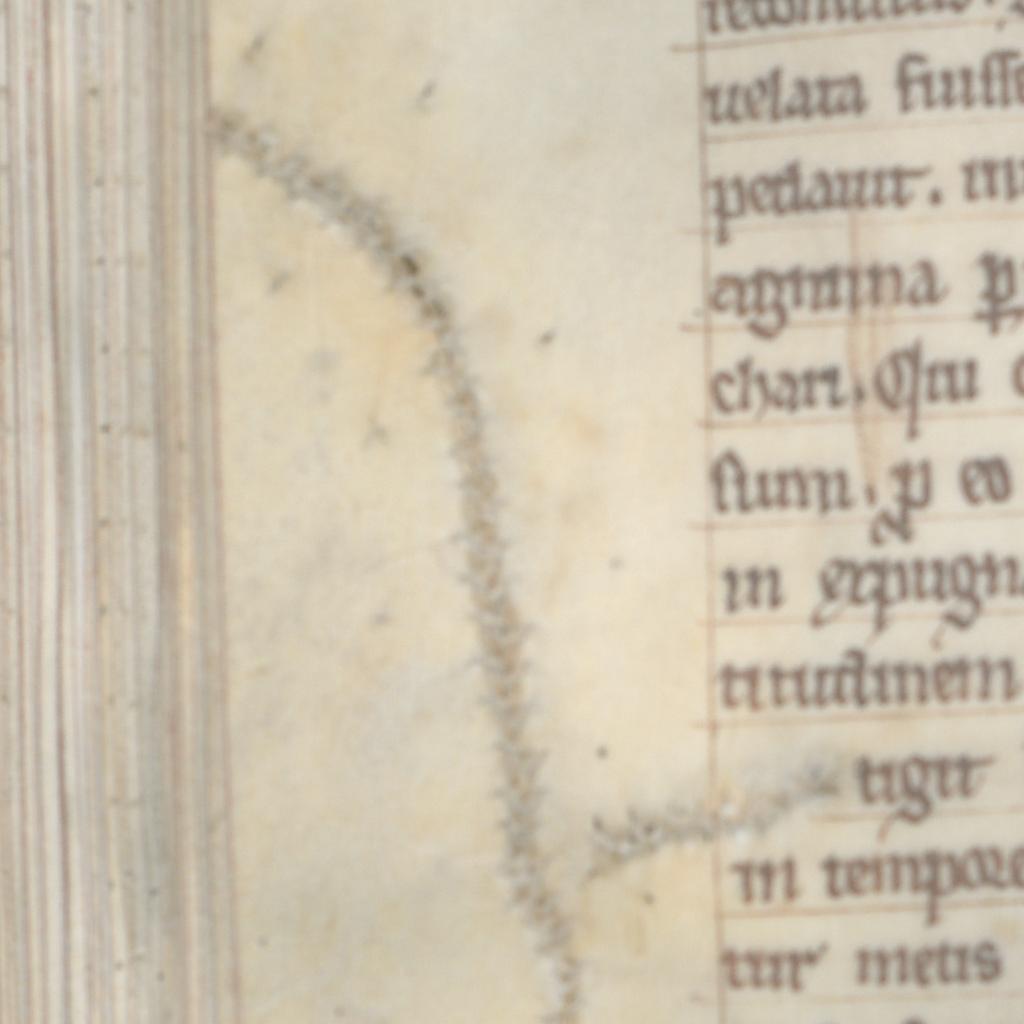 uelata fuiss
pedauit. in
agmina p
chari. Qui
sum. p eo
in expugn
titudinem
tigit
in tempore
tur metis